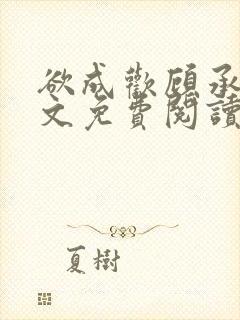 欲成歡顧承
文免費閱讀
夏樹